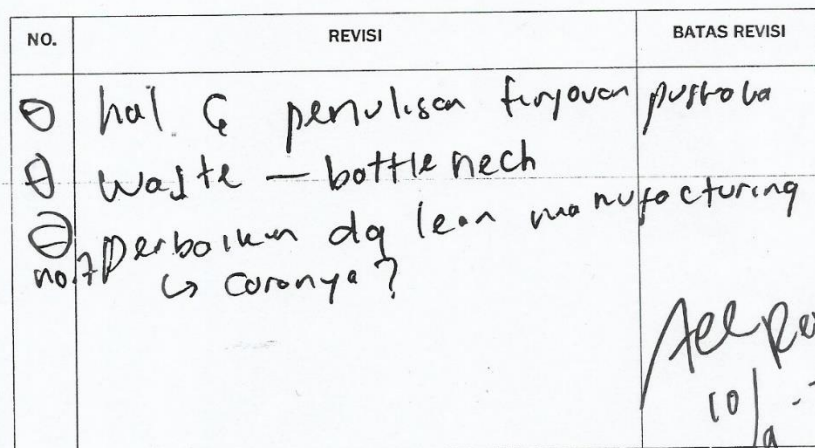 NO. REVISI BATAS REVISI
hal 6 penulisan tinjauan pustaka
waste — bottle nech
perbaikan dg lean manufacturing
no.7 ↳ caranya?
Acc Rev
10/9